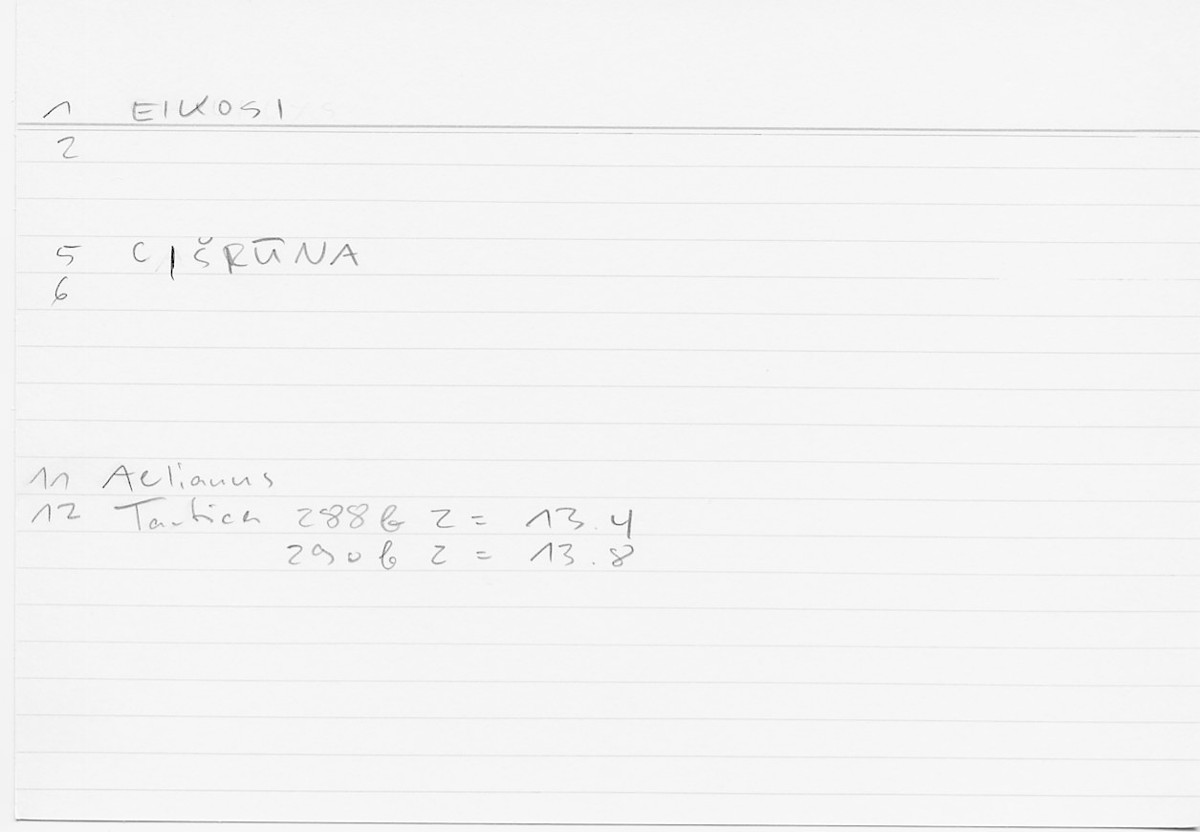 1 EIKOSI
2
5 CIŠRŪNA
6
11 Aelianus
12 Tactica 288b 2 = 13.4
290b 2 = 13.8